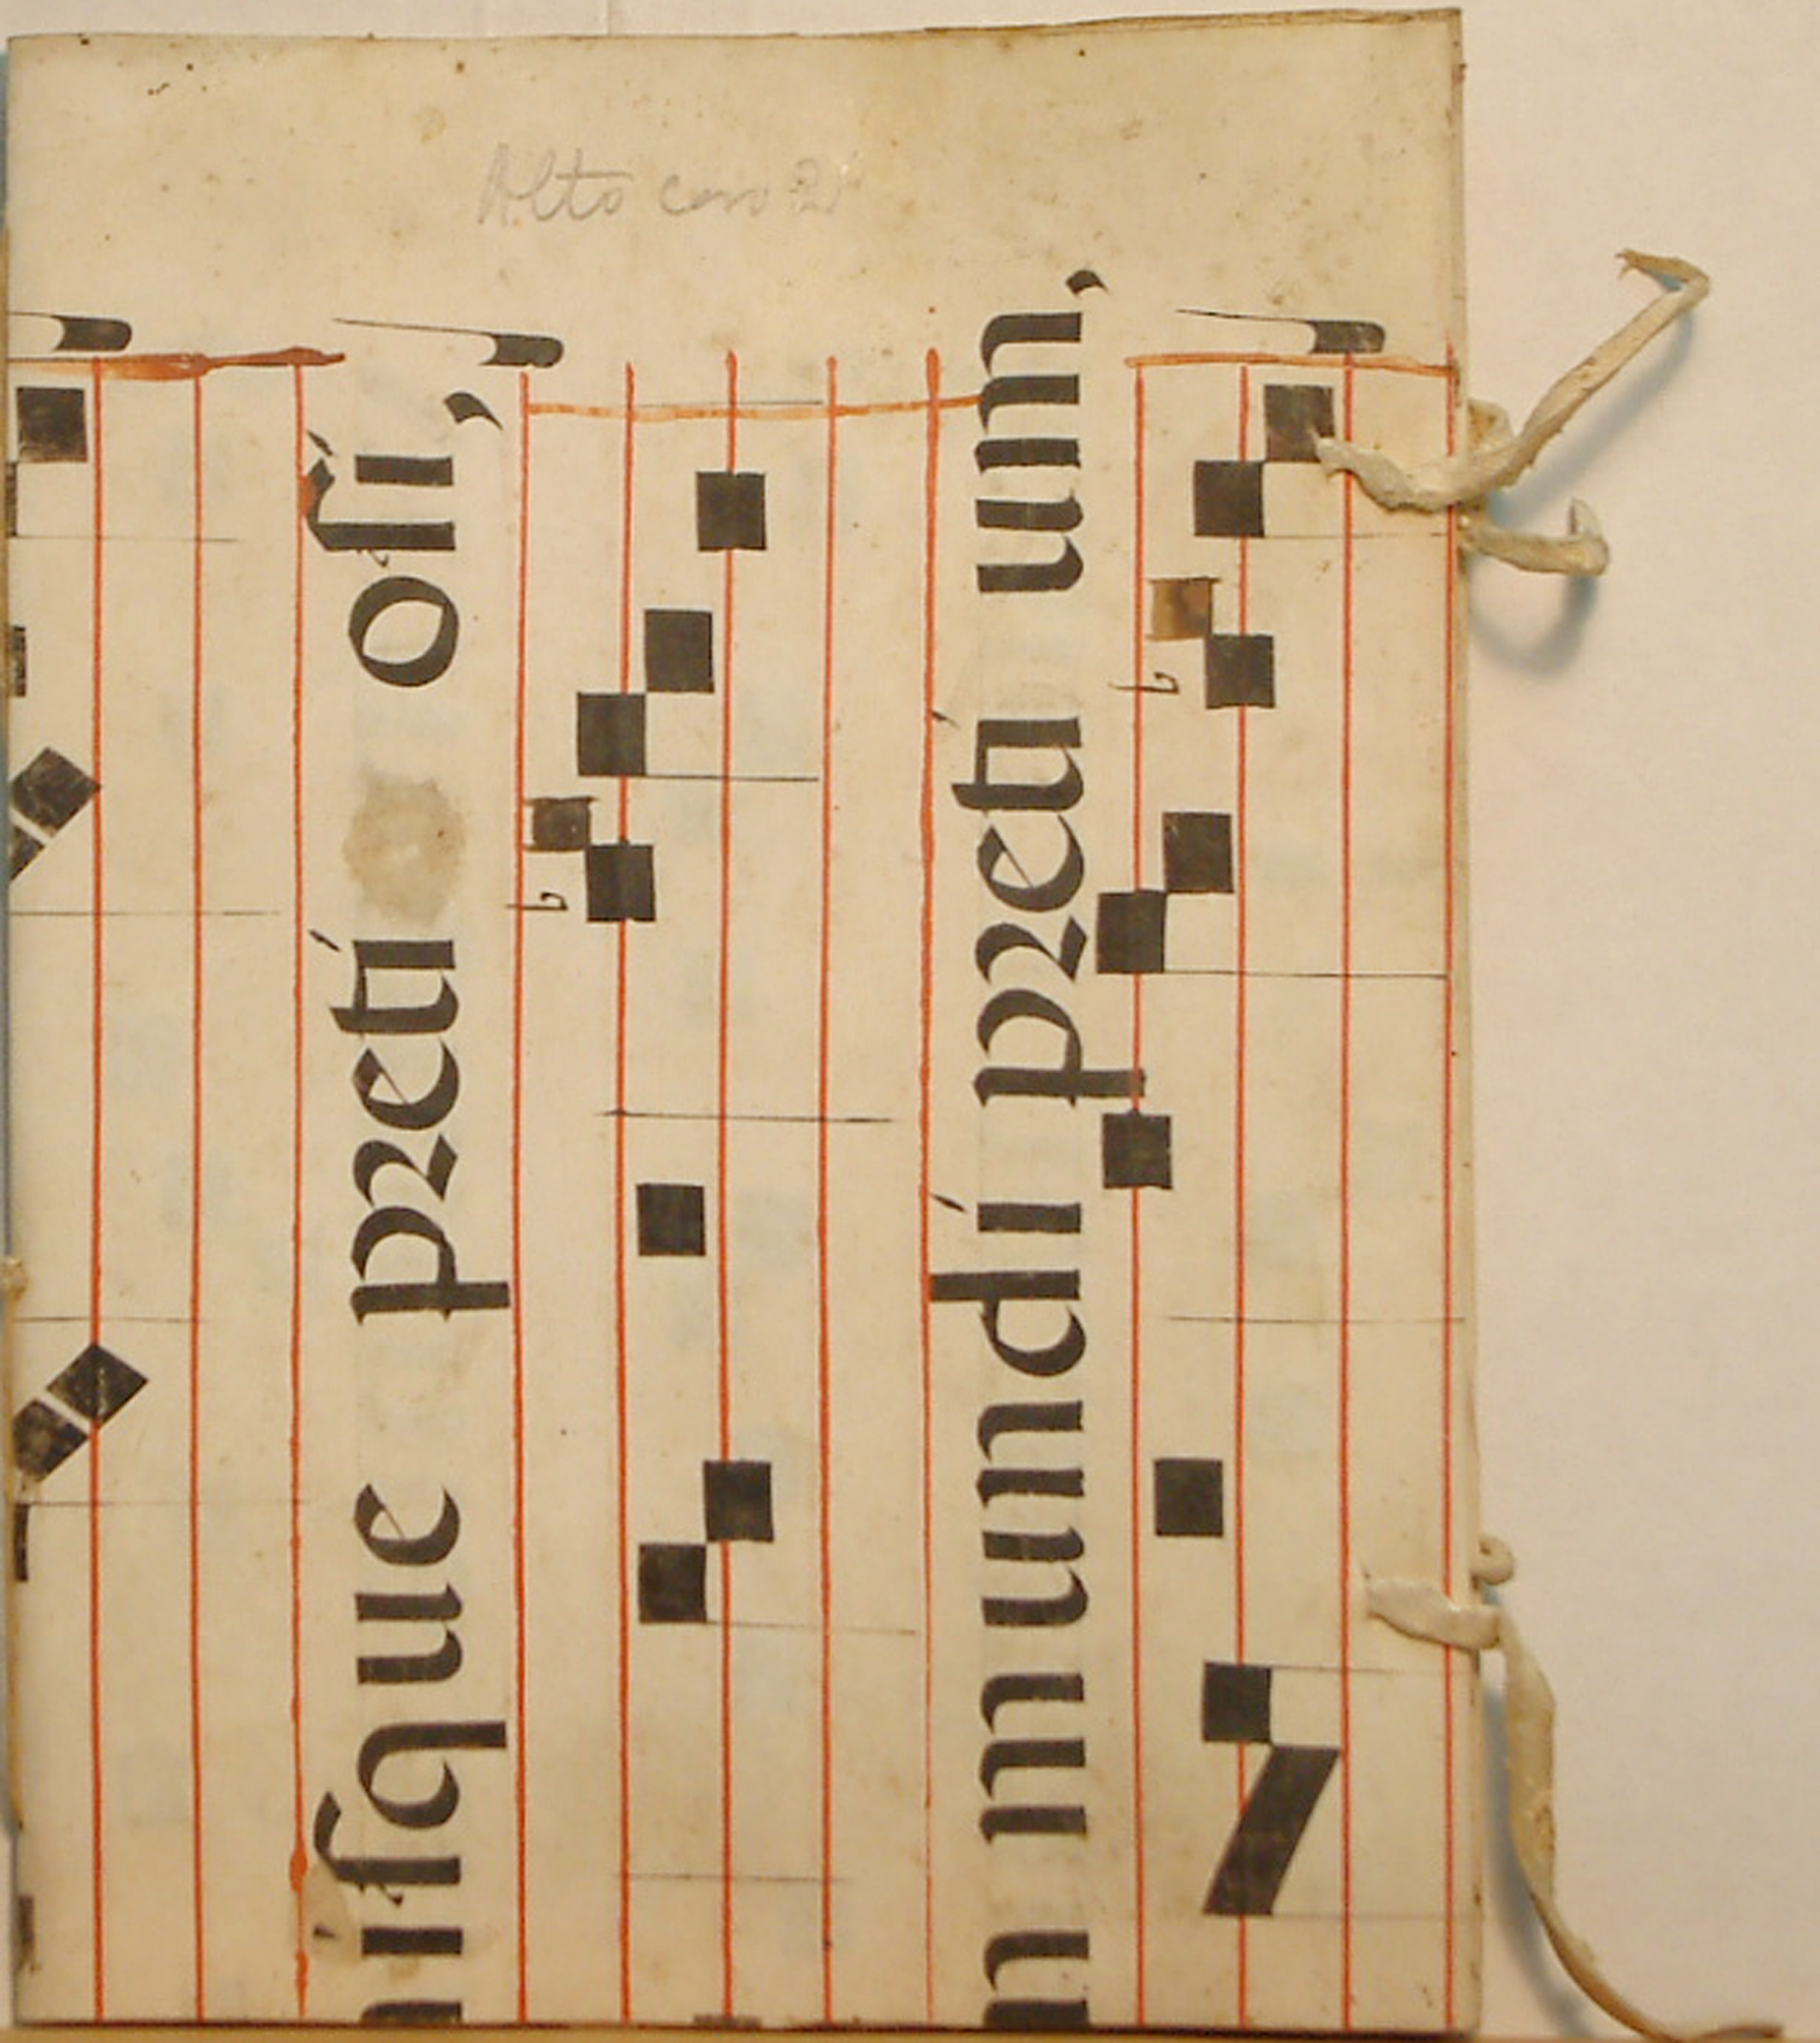 Alto coro 2º
iſque preti oſi,
n mundi preti um,